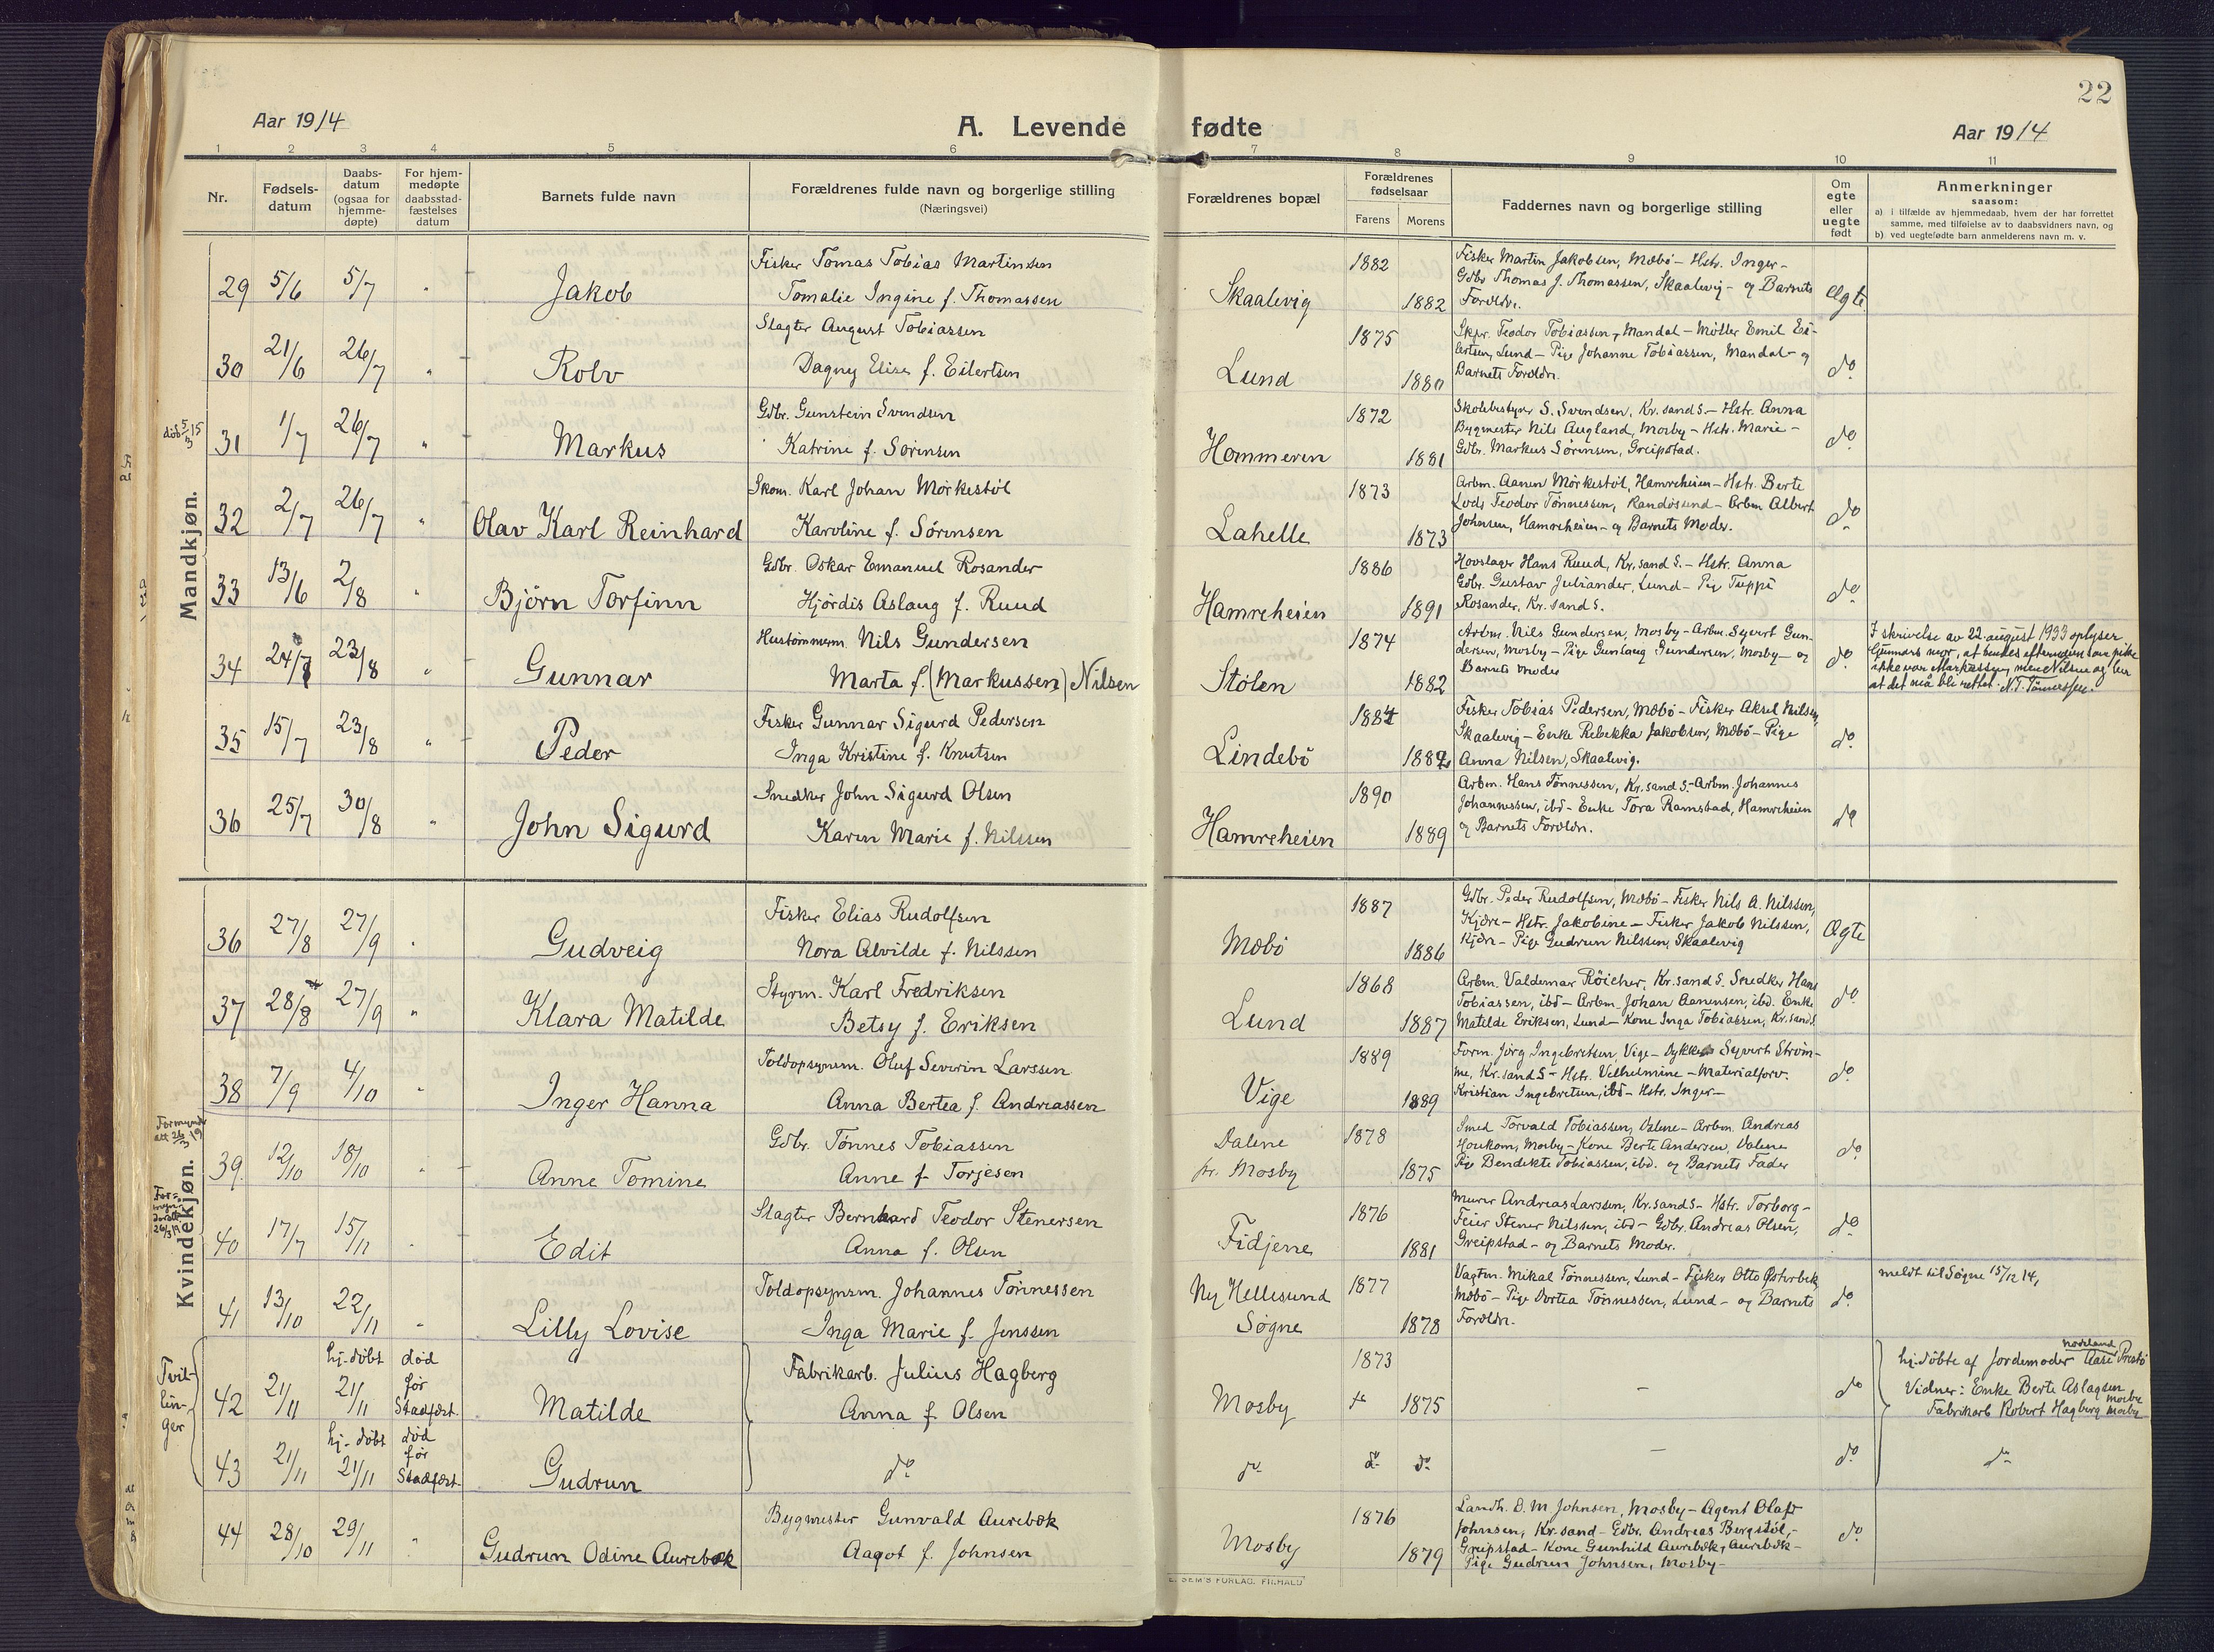 22
Aar 1914
A. Levende fødte
Aar 1914
1 2 3 4 5 6 7 8 9 10 11
Nr.
Fødsels-
datum
Daabs-
datum
(ogsaa for
hjemme-
døpte)
For hjem-
medøpte
daabsstad-
fæstelses
datum
Barnets fulde navn
Forældrenes fulde navn og borgerlige stilling
(Næringsvei)
Forældrenes bopæl
Forældrenes
fødselsaar
Farens Morens
Faddernes navn og borgerlige stilling
Om
egte
eller
uegte
født
Anmerkninger
saasom:
a) i tilfælde av hjemmedaab, hvem der har forrettet
samme, med tilføielse av to daabsvidners navn, og
b) ved uegtefødte barn anmelderens navn m. v.
Mandkjøn.
29 5/6 5/7 " Jakob
Fisker Tomas Tobias Martinsen
Tomalie Ingine f. Thomassen
Skaalevig 1882 1882
Fisker Martin Jakobsen, Mæbø - Hstr. Inger -
Gdbr Thomas J. Thomassen, Skaalevig - og Barnets
Forældr.
Ægte
30 21/6 26/7 " Rolv
Slagter August Tobiassen
Dagny Elise f. Eilertsen
Lund 1875 1880
Skpr. Teodor Tobiassen, Mandal - Møller Emil Ei-
lertsen, Lund - Pige Johanne Tobiassen, Mandal - og
Barnets Forældr.
do
død 5/3 15
31 1/7 26/7 " Markus
Gdbr. Gunstein Svendsen
Katrine f. Sørensen
Hommeren 1872 1881
Skolebestyrer S. Svendsen, Kr.sand S. - Hstr. Anna
Bygmester Nils Augland, Mosby - Hstr. Marie -
Gdbr. Markus Sørensen, Greipstad.
do
32 2/7 26/7 " Olav Karl Reinhard
Skom. Karl Johan Mørkestøl
Karoline f. Sørensen
Lahelle 1873 1873
Arbm. Aanen Mørkestøl, Hamreheien - Hstr. Berte
Lods Teodor Tønnessen, Randøsund - Arbm Albert
Johnsen, Hamreheien - og Barnets Moder.
do
33 13/6 2/8 " Bjørn Torfinn
Gdbr. Oskar Emanuel Rosander
Hjørdis Aslaug f. Ruud
Hamreheien 1886 1891
Hovslager Hans Ruud, Kr.sand S. - Hstr. Anna
Gdbr. Gustav Juliander, Lund - Pige Tuppi
Rosander, Kr.sand S.
do
34 24/7 23/8 " Gunnar
Hustømmerm. Nils Gundersen
Marta f. (Markussen) Nilsen
Stølen 1874 1882
Arbm. Nils Gundersen, Mosby - Arbm. Syvert Gun-
dersen, Mosby - Pige Gunlaug Gundersen, Mosby - og
Barnets Moder
do
I skrivelse av 22. august 1933 oplyser
Gunnars mor, at hendes efternavn som pike
ikke var Markussen, men Nilsen og ber
at det må bli rettet. N.T. Tønnessen.
35 15/7 23/8 " Peder
Fisker Gunnar Sigurd Pedersen
Inga Kristine f. Knutsen
Lindebø 1884 1882
Fisker Tobias Pedersen, Mæbø - Fisker Aksel Nilsen,
Skaalevig - Enke Rebekka Jakobsen, Mæbø - Pige
Anna Nilsen, Skaalevig.
do
36 25/7 30/8 " John Sigurd
Snedker John Sigurd Olsen
Karen Marie f. Nilssen
Hamreheien 1890 1889
Arbm. Hans Tønnessen, Kr.sand S. - Arbm. Johannes
Johannessen, ibd - Enke Tora Ramstad, Hamreheien
og Barnets Forældr.
do
Kvindekjøn.
36 27/8 27/9 " Gudveig
Fisker Elias Rudolfsen
Nora Alvilde f. Nilssen
Mæbø 1887 1886
Gdbr. Peder Rudolfsen, Mæbø - Fisker Nils A. Nilssen,
Kjære - Hstr. Jakobine - Fisker Jakob Nilssen,
Kjære - Pige Gudrun Nilssen, Skaalevig
Ægte
37 28/8 27/9 " Klara Matilde
Styrm. Karl Fredriksen
Betsy f. Eriksen
Lund 1868 1887
Arbm. Valdemar Røicher, Kr.sand S. Snedker Hans
Tobiassen, ibd - Arbm. Johan Aanensen, ibd. Enke
Matilde Eriksen, Lund - Kone Inga Tobiassen, Kr.sand S.
do
38 7/9 4/10 " Inger Hanna
Toldopsynsm. Oluf Severin Larssen
Anna Bertea f. Andreassen
Vige 1889 1889
Form. Jørg Ingebretsen, Vige - Dykker Syvert Strøm-
me, Kr.sand S - Hstr. Velhelmine - Materialforv.
Kristian Ingebretsen, ibd - Hstr. Inger -
do
39. 12/10 18/10 " Anne Tomine
Gdbr. Tønnes Tobiassen
Anne f. Torjesen
Dalene
pr. Mosby 1878 1875
Smed Torvald Tobiassen, Dalene - Arbm. Andreas
Houkom, Mosby - Kone Berte Andersen, Dalene
Pige Bendikte Tobiassen, ibd. og Barnets Fader
do
40 17/7 15/11 " Edit
Slagter Bernhard Teodor Stenersen
Anna f. Olsen
Fidjene 1876 1881
Murer Andreas Larssen, Kr.sand S - Hstr. Torborg -
Feier Stener Nilssen, ibd - Gdbr. Andreas Olsen,
Greipstad - og Barnets Moder.
do
41 13/10 22/11 " Lilly Lovise
Toldopsynsm. Johannes Tønnessen
Inga Marie f. Jenssen
Ny Hellesund
Søgne 1877 1878
Vagtm. Mikal Tønnessen, Lund - Fisker Otto Østerbek
Mæbø - Pige Dortea Tønnessen, Lund - og Barnets
Forældr.
do
meldt til Søgne 15/12 14,
Tvil-
lin-
ger
42 21/11 hj-døbt 21/11 død før Stadfæst. Matilde
Fabrikarb. Julius Hagberg
Anna f. Olsen
Mosby 1873 1875
- do
hj.døbte af Jordemoder Aase Præstø
Vidner: Enke Berte Aslagsen Mosby
Fabrikarb Robert Hagberg Mosby
43 21/11 hj-døbt 21/11 død før Stadfæst. Gudrun
do do do do - do do
44 28/10 29/11 " Gudrun Odine Aurebæk
Bygmester Gunvald Aurebæk
Aagot f. Johnsen
Mosby 1876 1879
Landh. O. M Johnsen, Mosby - Agent Olaf
Johnsen, Kr.sand - Gdbr. Andreas Bergstøl, -
Greipstad - Kone Gunhild Aurebæk, Aurebæk -
Pige Gudrun Johnsen, Mosby -
do
SEM'S FORLAG. FR.HALD